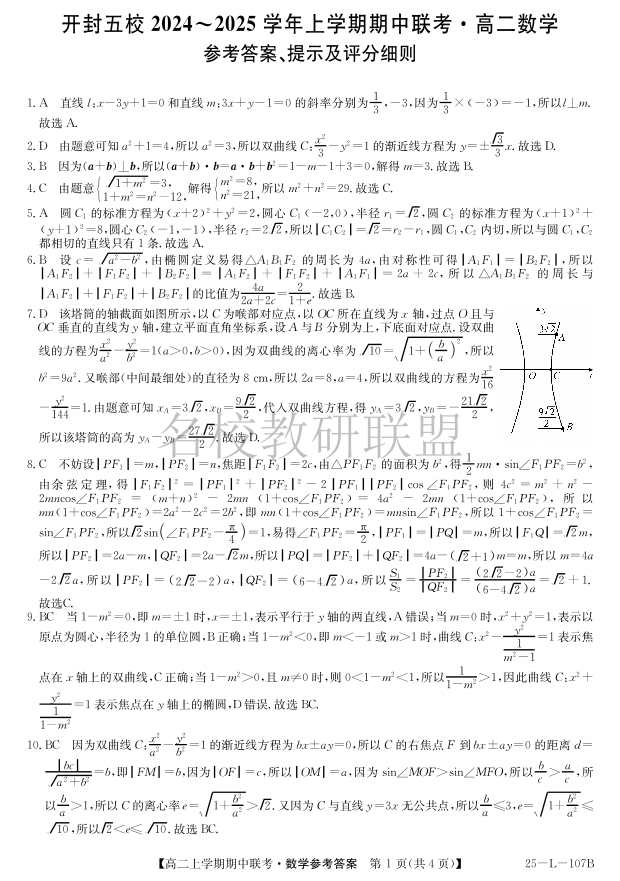 开封五校 2024～2025 学年上学期期中联考·高二数学
参考答案、提示及评分细则
1. A　直线 l:x-3y+1=0 和直线 m:3x+y-1=0 的斜率分别为 1/3,-3,因为 1/3×(-3)=-1,所以 l⊥m.
故选 A.
2. D　由题意可知 a²+1=4,所以 a²=3,所以双曲线 C:x²/3-y²=1 的渐近线方程为 y=±√3/3 x. 故选 D.
3. B　因为(a+b)⊥b,所以(a+b)·b=a·b+b²=1-m-1+3=0,解得 m=3. 故选 B.
4. C　由题意{√(1+m²)=3, 1+m²=n²-12, 解得{m²=8, n²=21, 所以 m²+n²=29. 故选 C.
5. A　圆 C₁ 的标准方程为(x+2)²+y²=2,圆心 C₁(-2,0),半径 r₁=√2,圆 C₂ 的标准方程为(x+1)²+
(y+1)²=8,圆心 C₂(-1,-1),半径 r₂=2√2,所以|C₁C₂|=√2=r₂-r₁,圆 C₁,C₂ 内切,所以与圆 C₁,C₂
都相切的直线只有 1 条. 故选 A.
6. B　设 c=√(a²-b²),由椭圆定义易得△A₁B₁F₂ 的周长为 4a,由对称性可得|A₁F₁|=|B₂F₂|,所以
|A₁F₂|+|F₁F₂|+|B₂F₂|=|A₁F₂|+|F₁F₂|+|A₁F₁|=2a+2c,所以△A₁B₁F₂ 的周长与
|A₁F₂|+|F₁F₂|+|B₂F₂|的比值为 4a/(2a+2c)=2/(1+e). 故选 B.
7. D　该塔筒的轴截面如图所示,以 C 为喉部对应点,以 OC 所在直线为 x 轴,过点 O 且与
OC 垂直的直线为 y 轴,建立平面直角坐标系,设 A 与 B 分别为上,下底面对应点. 设双曲
线的方程为 x²/a²-y²/b²=1(a>0,b>0),因为双曲线的离心率为 √10=√(1+(b/a)²),所以
b²=9a². 又喉部(中间最细处)的直径为 8 cm,所以 2a=8,a=4,所以双曲线的方程为 x²/16
-y²/144=1. 由题意可知 x_A=3√2,x_B=9√2/2,代入双曲线方程,得 y_A=3√2,y_B=-21√2/2,
所以该塔筒的高为 y_A-y_B=27√2/2. 故选 D.
y
3√2
A
O
C
x
9√2/2
B
名校教研联盟
8. C　不妨设|PF₁|=m,|PF₂|=n,焦距|F₁F₂|=2c,由△PF₁F₂ 的面积为 b²,得 1/2 mn·sin∠F₁PF₂=b²,
由余弦定理,得|F₁F₂|²=|PF₁|²+|PF₂|²-2|PF₁||PF₂|cos∠F₁PF₂,则 4c²=m²+n²-
2mncos∠F₁PF₂ = (m+n)² - 2mn (1+cos∠F₁PF₂) = 4a² - 2mn (1+cos∠F₁PF₂),所以
mn(1+cos∠F₁PF₂)=2a²-2c²=2b²,即 mn(1+cos∠F₁PF₂)=mnsin∠F₁PF₂,所以 1+cos∠F₁PF₂=
sin∠F₁PF₂,所以√2sin(∠F₁PF₂-π/4)=1,易得∠F₁PF₂=π/2,|PF₁|=|PQ|=m,所以|F₁Q|=√2m,
所以|PF₂|=2a-m,|QF₂|=2a-√2m,所以|PQ|=|PF₂|+|QF₂|=4a-(√2+1)m=m,所以 m=4a
-2√2a,所以|PF₂|=(2√2-2)a,|QF₂|=(6-4√2)a,所以 S₁/S₂=|PF₂|/|QF₂|=(2√2-2)a/(6-4√2)a=√2+1.
故选C.
9. BC　当 1-m²=0,即 m=±1 时,x=±1,表示平行于 y 轴的两直线,A 错误;当 m=0 时,x²+y²=1,表示以
原点为圆心,半径为 1 的单位圆,B 正确;当 1-m²<0,即 m<-1 或 m>1 时,曲线 C:x²-y²/(1/(m²-1))=1 表示焦
点在 x 轴上的双曲线,C 正确;当 1-m²>0,且 m≠0 时,则 0<1-m²<1,所以 1/(1-m²)>1,因此曲线 C:x²+
y²/(1/(1-m²))=1 表示焦点在 y 轴上的椭圆,D 错误. 故选 BC.
10. BC　因为双曲线 C:x²/a²-y²/b²=1 的渐近线方程为 bx±ay=0,所以 C 的右焦点 F 到 bx±ay=0 的距离 d=
|bc|/√(a²+b²)=b,即|FM|=b,因为|OF|=c,所以|OM|=a,因为 sin∠MOF>sin∠MFO,所以 b/c>a/c,所
以 b/a>1,所以 C 的离心率 e=√(1+b²/a²)>√2. 又因为 C 与直线 y=3x 无公共点,所以 b/a≤3,e=√(1+b²/a²)≤
√10,所以√2<e≤√10. 故选 BC.
【高二上学期期中联考·数学参考答案　第 1 页(共 4 页)】
25-L-107B